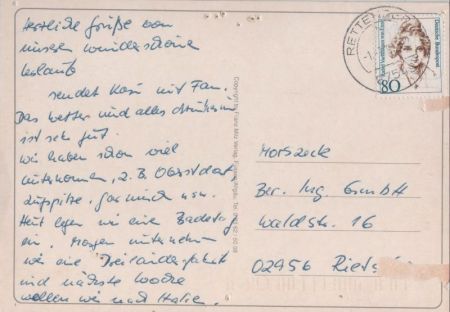 Herzliche Grüße von
unseren wunderschönen
Urlaub
sendet Kasi mit Fam.
Das Wetter und alles drumherum
ist sehr gut.
wir haben schon viel
unternommen, z.B. Oberstdorf
Zugspitze, Garmisch usw.
Heut legen wir eine Badetag
ein. Morgen unternehmen
wir eine Dreiländerfahrt
und nächste Woche
wollen wir nach Italien.
Copyright by Franz Milz Verlag
Deutsche Bundespost
80
RETTENBERG
Morszeck
Ber. Ing. GmbH
Waldstr. 16
02956 Rietschen